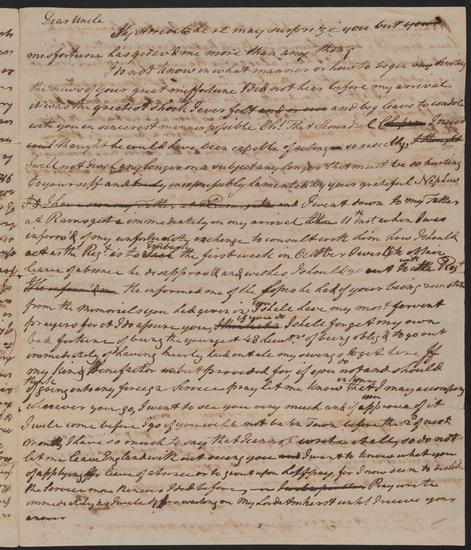 Dear Uncle
My arrival here may surprize you but your
misfortune has grieved me more than any thing
I do not know in what manner or how to begin my
the news of your great misfortune I did not hier before my arrival
it was the greatest shock I ever felt and and beg leave to condole
with you in sincerest manner possible Oh! That Scoundrel C I never
thought he would have been capable of acting so rascally I thought
I will not dwell any longer on a subject any longer that must be so hurting
to yourself and truly inexpressibly lamented by your grateful Nephew
I have I went down to my Father
at Ramsgate immediately on my arrival the 11th inst when I was
inform'd of my unfortunate exchange to consult with him how I should
act as the Regt is to the first week in October I wish to
leave of absence he disapprov'd and wishes I should go out with the Regt
he informed me of the hopes he had of your being
from the Memorials you had given in you shall have my most fervent
prayers for it I do assure you, I shall forget my own
bad fortune of being the youngest of 48 Lieuts of being oblig'd to go out
immediately of having nearly lost all my to get here if
my friend & Benefactor was but provided for, if you not and should
think of going onto any foreign service pray let me know that I may accompany
wherever you go, I want to see you very much and if you approve of it
I will come before I go if you will not be in Town before the 2d next
month I have so much to say that I cannot wrote it all, so do not
let me leave England without seeing you and I want to know what you
of applying for leave of absence or to go out upon half pay, for I now seem to dislike
the service more than ever I did before, Pray write
immediately as I will off waiting on my Lord Amherst until I receive your
answer